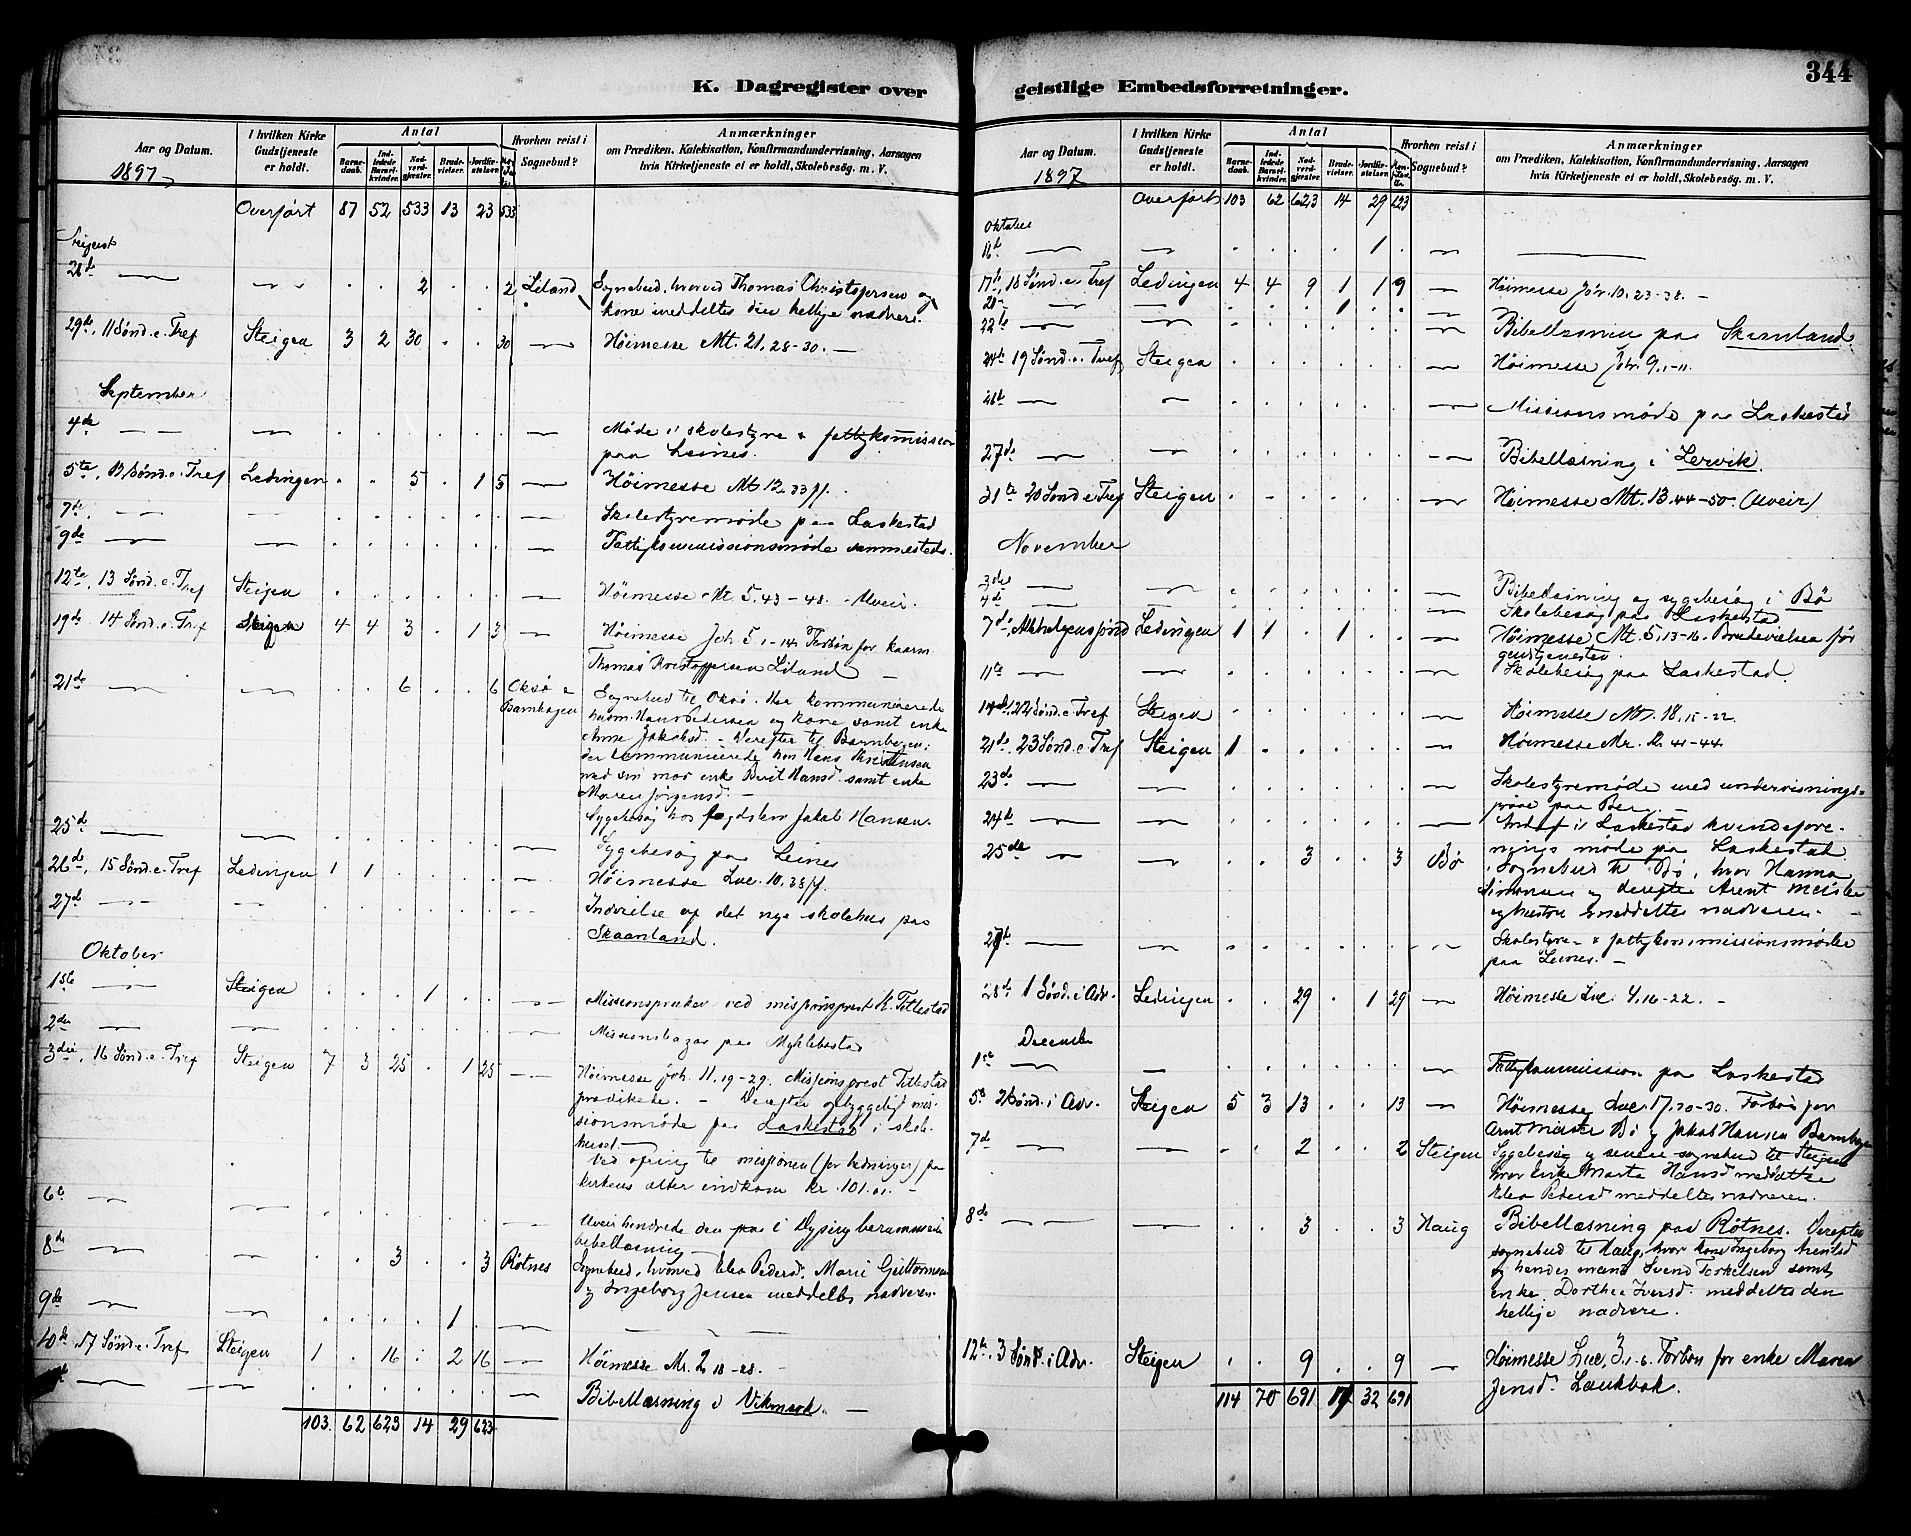 344
K. Dagregister over
Aar og Datum.
1897
I hvilken Kirke
Gudstjeneste
er holdt.
Antal
Barne-
daab.
Ind-
ledede
Barsel-
kvinder.
Nad-
verd-
gjester.
Brude-
vielser.
Jordfæ-
stelser.
Hvorhen reist i
Sognebud?
Anmærkninger
om Prædiken, Katekisation, Konfirmandundervisning, Aarsagen
hvis Kirketjeneste ei er holdt, Skolebesøg. m. V.
Overført 87 52 533 13 23 533
August
28de 2 2 Leland Sognebud, hvorved Thomas Christofersen og
kone meddeltes den hellige nadvere.
29de, 11 Sønd. e. Tref Steigen 3 2 30 . . 30 Høimesse Mt. 21, 28-30.
September
4de Møde i skolestyre & fattigkommission
paa Leines.
5te, 12 Sønd. e. Tref Ledingen . . 5 . 1 5 Høimesse Mt. 12, 33 ff.
7de Skolestyremøde paa Laskestad
9de Fattigkommissionsmøde sammesteds.
12te, 13 Sønd. e. Tref Steigen Høimesse Mt. 5, 43-48. Uveir.
19de 14 Sønd. e. Tref Steigen 4 4 3 . 1 3 Høimesse Joh. 5, 1-14. Forbøn for kaarm.
Thomas Kristoffersen Leland
21de 6 . . 6 Oksø &
Barnhagen
Sognebud til Oksø. Her kommunicerede
kaarm. Hans Pedersen og kone samt enke
Anne Jakobsd. - Derefter til Barnhagen;
der kommunicerede hos Hans Kristensen
med sin mor enke Berit Hansd. samt enke
Maren Jørgensd. -
Sygebesøg hos fogdslev Jakob Hansen.
25de Sygebesøg paa Leines
26de, 15 Sønd. e. Tref Ledingen 1 1 Høimesse Luc. 10, 38 ff.
27de Indvielse af det nye skolehus paa
Skaanland.
Oktober
1ste Steigen 1 Missionsprædiken ved missionsprest K. Titlestad
2den Missionsbazar paa Myklebostad
3die, 16 Sønd. e. Tref Steigen 7 3 25 . 1 25 Høimesse Joh. 11, 19-29. Missionsprest Titlestad
prædikede. - Derefter opbyggeligt mis-
sionsmøde paa Laskestad i skole-
huset.
Ved ofring til missionen (for hedninger) paa
kirkens alter indkom kr. 101.01. -
6te Uveir hindrede den paa i Dyping berammede
bibellæsning
8de 3 . . 3 Røtnes Sognebud, hvorved Elea Pedersd., Marie Guttormsen
og Ingeborg Jensen meddeltes nadveren.
9de 1
10de 17 Sønd. e. Tref Steigen 1 . 16 . 2 16 Høimesse Mr. 2, 18-28.
Bibellæsning i Vikmark.
103. 62 623 14 29 623
geistlige Embedsforretninger.
Aar og Datum.
1897
I hvilken Kirke
Gudstjeneste
er holdt.
Antal
Barne-
daab.
Ind-
ledede
Barsel-
kvinder.
Nad-
verd-
gjester.
Brude-
vielser.
Jordfæ-
stelser.
Hvorhen reist i
Sognebud?
Anmærkninger
om Prædiken, Katekisation, Konfirmandundervisning, Aarsagen
hvis Kirketjeneste ei er holdt, Skolebesøg. m. V.
Overført 103 62 623 14 29 623
Oktober
16de 1
17de, 18 Sønd. e. Tref Ledingen 4 4 9 1 1 9 Høimesse Joh. 10, 23-38. -
20de 1
22de Bibellæsning paa Skaanland.
24de 19 Sønd. e. Tref Steigen Høimesse Joh. 9, 1-11.
26de Missionsmøde paa Laskestad
27de Bibellæsning i Lervik.
31te 20 Sønd e Tref Steigen Høimesse Mt. 13, 44-50. (Uveir)
November
3de Bibellæsning og sygebesøg i Bø
4de Skolebesøg paa Laskestad
7de, Allehelgenssønd Ledingen 1 1 . 1 . . Høimesse Mt. 5, 13-16. Brudevielsen før
gudstjenesten.
11te Skolebesøg paa Laskestad.
14de, 22 Sønd. e. Tref Steigen Høimesse Mt. 18, 15-22.
21de, 23 Sønd. e. Tref Steigen 1 Høimesse Mr. 12, 41-44
23de Skolestyremøde med undervisnings-
prøve paa Berg. -
24de Andagt i Laskestad kvindefore-
nings møde paa Laskestad.
25de 3 . . 3 Bø Sognebud til Bø, hvor Hanna
Simonsen og derefter Arent Meisler
og hustru meddeltes nadveren. -
27de Skolestyre- & fattigkommissionsmøde
paa Leines. -
28de 1 Sønd. i Adv. Ledingen . . 29 . 1 29 Høimesse Luc. 4, 16-22. -
December
1ste Fattigkommission paa Laskestad
5te 2 Sønd. i Adv. Steigen 5 3 13 . . 13 Høimesse Luc. 17, 20-30. Forbøn for
Arnt Meisler Bø og Jakob Hansen Barnhagen
7de 2 . . 2 Steigen Sygebesøg og senere sognebud til Steigen
hvor enke Marta Hansd meddeltes
Elea Pedersd meddeltes nadveren.
8de 3 . . 3 Haug Bibellæsning paa Røtnes. Derefter
sognebud til Haug, hvor kone Ingeborg Arentsd
og hendes mand Svend Torkelsen samt
enke Dorthea Iversd. meddeltes den
hellige nadvere.
12te, 3 Sønd. i Adv. Steigen . . 9 . . 9 Høimesse Luc. 3, 1-6. Forbøn for enke Maren
Jensd. Laukbak.
114 70 691 17 32 691